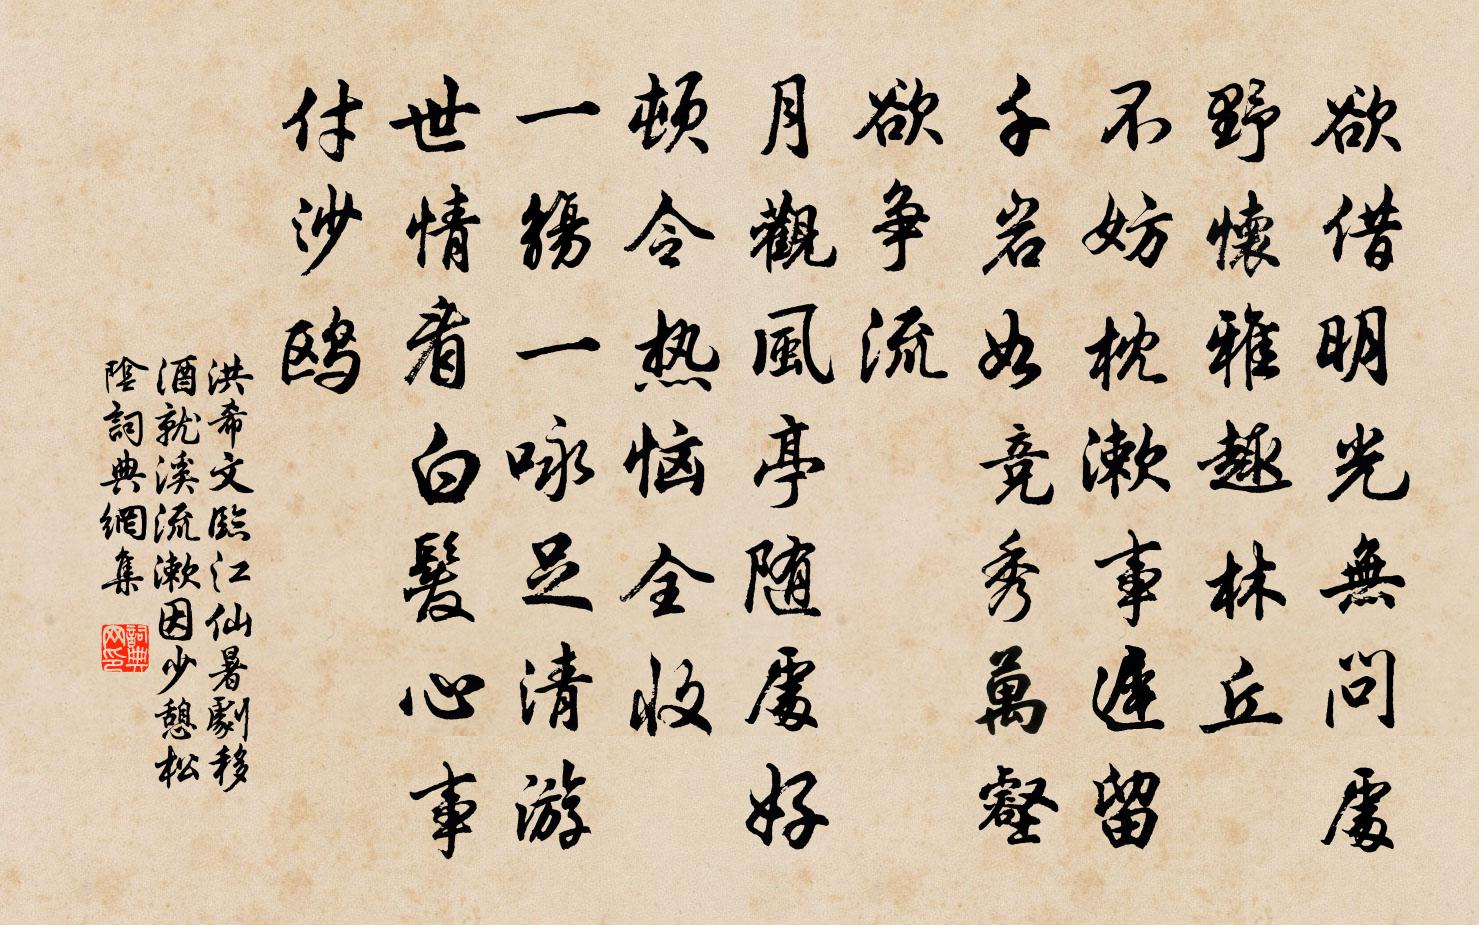 欲借明光無問處
野懷雅趣林丘
不妨枕漱事遲留
千岩如竞秀萬壑
欲争流
月觀風亭随處好
頓令热恼全收
一觴一咏足清游
世情看白髮心事
付沙鸥
洪希文臨江仙暑劇移
酒就溪流漱因少憩松
陰詞典網集
詞典网印